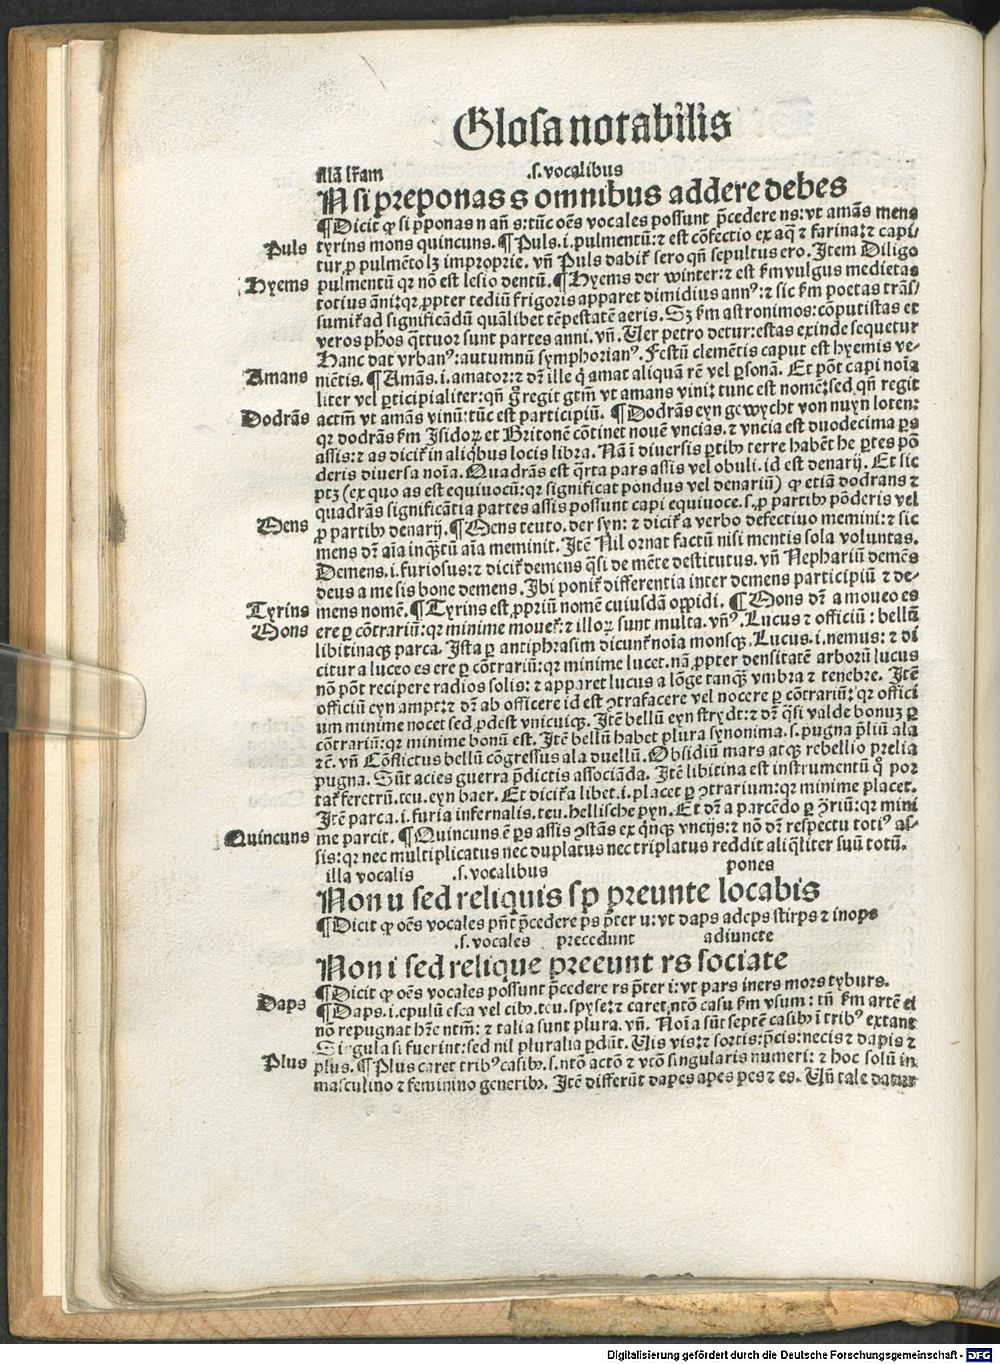 Glosa notabilis
illã lr̃am .s. vocalibus
N si preponas s omnibus addere debes
¶Dicit ꝙ si p̃ponas n añ s: tũc oẽs vocales possunt p̃cedere ns: vt amãs mens
Puls tyrins mons quincuns. ¶Puls .i. pulmentũ: ⁊ est cõfectio ex aq̃ ⁊ farina: ⁊ capi⸗
tur ꝓ pulmẽto lꝫ improprie. vñ Puls dabit᷑ sero qñ sepultus ero. Item Diligo
Hyems pulmentũ qꝛ nõ est lesio dentũ. ¶Hyems der winter: ⁊ est ẜm vulgus medietas
totius ãni: qꝛ ꝓpter tediũ frigoris apparet dimidius annꝰ: ⁊ sic ẜm poetas trãs⸗
sumit᷑ ad significãdũ quãlibet tẽpestatẽ aeris. Sꝫ ẜm astronimos: cõputistas et
veros ph̃os q̃ttuor sunt partes anni. vñ. Uer petro detur: estas exinde sequetur
Hanc dat vrbanꝰ: autumnũ symphorianꝰ. Festũ clemẽtis caput est hyemis ve⸗
Amans niẽtis. ¶Amãs .i. amator: ⁊ dr̃ ille q̇ amat aliquã rẽ vel ꝑsonã. Et põt capi noĩa
liter vel ꝑticipialiter: qñ g̊ regit gtm̃ vt amans vini: tunc est nomẽ: sed qñ regit
Dodrãs actm̃ vt amãs vinũ: tũc est participiũ. ¶Dodrãs eyn gewycht von nuyn loten:
qꝛ dodrãs ẜm Isidoꝝ et Britonẽ cõtinet nouẽ vncias. ⁊ vncia est duodecima ꝑs
assis: ⁊ as dicit᷑ in aliq̇bus locis libra. Nã ĩ diuersis ꝑtibꝰ terre habẽt he ꝑtes põ
deris diuersa noĩa. Quadrãs est q̃rta pars assis vel obuli. id est denarij. Et sic
ptꝫ (ex quo as est equiuocũ: qꝛ significat pondus vel denariũ) ꝙ etiã dodrans ⁊
quadrãs significãtia partes assis possunt capi equiuoce. s. ꝓ partibꝰ põderis vel
Mens ꝓ partibꝰ denarij. ¶Mens teuto. der syn: ⁊ dicit᷑ a verbo defectiuo memini: ⁊ sic
mens dr̃ aĩa inq̃ꝫtũ aĩa meminit. Itẽ Nil ornat factũ nisi mentis sola voluntas.
Demens .i. furiosus: ⁊ dicit᷑ demens q̃si de mẽte destitutus. vñ Nephariũ demẽs
deus a me sis bone demens. Ibi ponit᷑ differentia inter demens participiũ ⁊ de⸗
Tyrins mens nomẽ. ¶Tyrins est ꝓpriũ nomẽ cuiusdã oppidi. ¶Mons dr̃ a moueo es
Mons ere ꝑ cõtrariũ: qꝛ minime mouet᷑: ⁊ illoꝝ sunt multa. vñꝰ. Lucus ⁊ officiũ: bellũ
libitinaqꝫ parca. Ista ꝑ antiphrasim dicunt᷑ noĩa monsqꝫ. Lucus .i. nemus: ⁊ di
citur a luceo es ere ꝑ cõtrariũ: qꝛ minime lucet. nã ꝓpter densitatẽ arborũ lucus
nõ põt recipere radios solis: ⁊ apparet lucus a lõge tanqꝫ̃ vmbra ⁊ tenebre. Itẽ
officiũ eyn ampt: ⁊ dr̃ ab officere id est ꝯtrafacere vel nocere ꝑ cõtrariũ: qꝛ offici
um minime nocet sed ꝓdest vnicuiqꝫ. Itẽ bellũ eyn strydt: ⁊ dr̃ q̃si valde bonuꝫ ꝑ
cõtrariũ: qꝛ minime bonũ est. Itẽ bellũ habet plura synonima. s. pugna p̃liũ ala
rẽ. vñ Cõflictus bellũ cõgressus ala duellũ. Obsidiũ mars atqꝫ rebellio prelia
pugna. Sũt acies guerra p̃dictis associãda. Itẽ libitina est instrumentũ q̊ por
tat᷑ feretrũ. teu. eyn baer. Et dicit᷑ a libet .i. placet ꝑ ꝯtrarium: qꝛ minime placet.
Itẽ parca .i. furia infernalis. teu. hellische pyn. Et dr̃ a parcẽdo ꝑ ꝯr̃iũ: qꝛ mini
Quincuns me parcit. ¶Quincuns ẽ ꝑs assis ꝯstãs ex q̇nqꝫ vncijs: ⁊ nõ dr̃ respectu totiꝰ as⸗
sis: qꝛ nec multiplicatus nec duplatus nec triplatus reddit aliq̃liter suũ totũ.
illa vocalis .s. vocalibus pones
Non u sed reliquis sp preunte locabis
¶Dicit ꝙ oẽs vocales pñt p̃cedere ps p̃ter u: vt daps adeps stirps ⁊ inops
.s. vocales precedunt adiuncte
Non i sed relique preeunt rs sociate
¶Dicit ꝙ oẽs vocales possunt p̃cedere rs p̃ter i: vt pars iners mors tyburs.
Daps ¶Daps .i. epulũ esca vel cibꝰ. teu. spyse: ⁊ caret ntõ casu ẜm vsum: tñ ẜm artẽ ei
nõ repugnat hr̃e ntm̃: ⁊ talia sunt plura. vñ. Noĩa sũt septẽ casibꝰ ĩ tribꝰ extant
Singula si fuerint: sed nil pluralia ꝑdũt. Uis vis: ⁊ sortis: p̃cis: necis ⁊ dapis ⁊
Plus plus. ¶Plus caret tribꝰ casibꝰ. s. ntõ actõ ⁊ vtõ singularis numeri: ⁊ hoc solũ in
masculino ⁊ feminino generibꝰ. Itẽ differũt dapes apes pes ⁊ es. Uñ tale datur
Digitalisierung gefördert durch die Deutsche Forschungsgemeinschaft - DFG